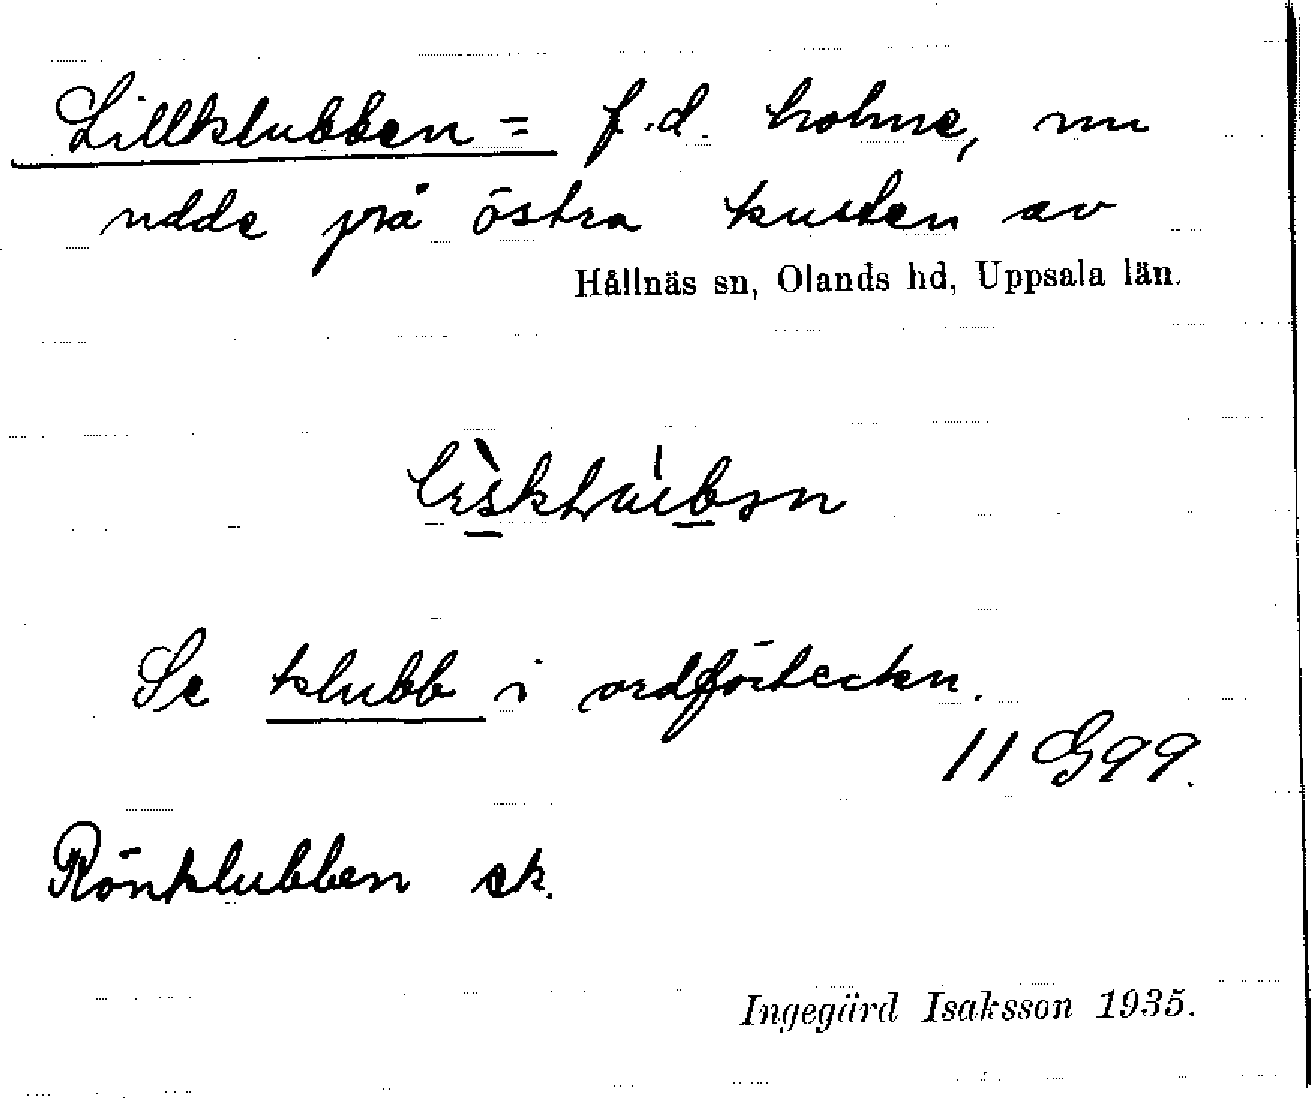 Lillklubben = f.d. holme, nu
udde på östra kusten av
Hållnäs sn, Olands hd, Uppsala län.
Se klubb i ordförteckn.
11 G 99.
Rönklubben ek.
Ingegärd Isaksson 1935.